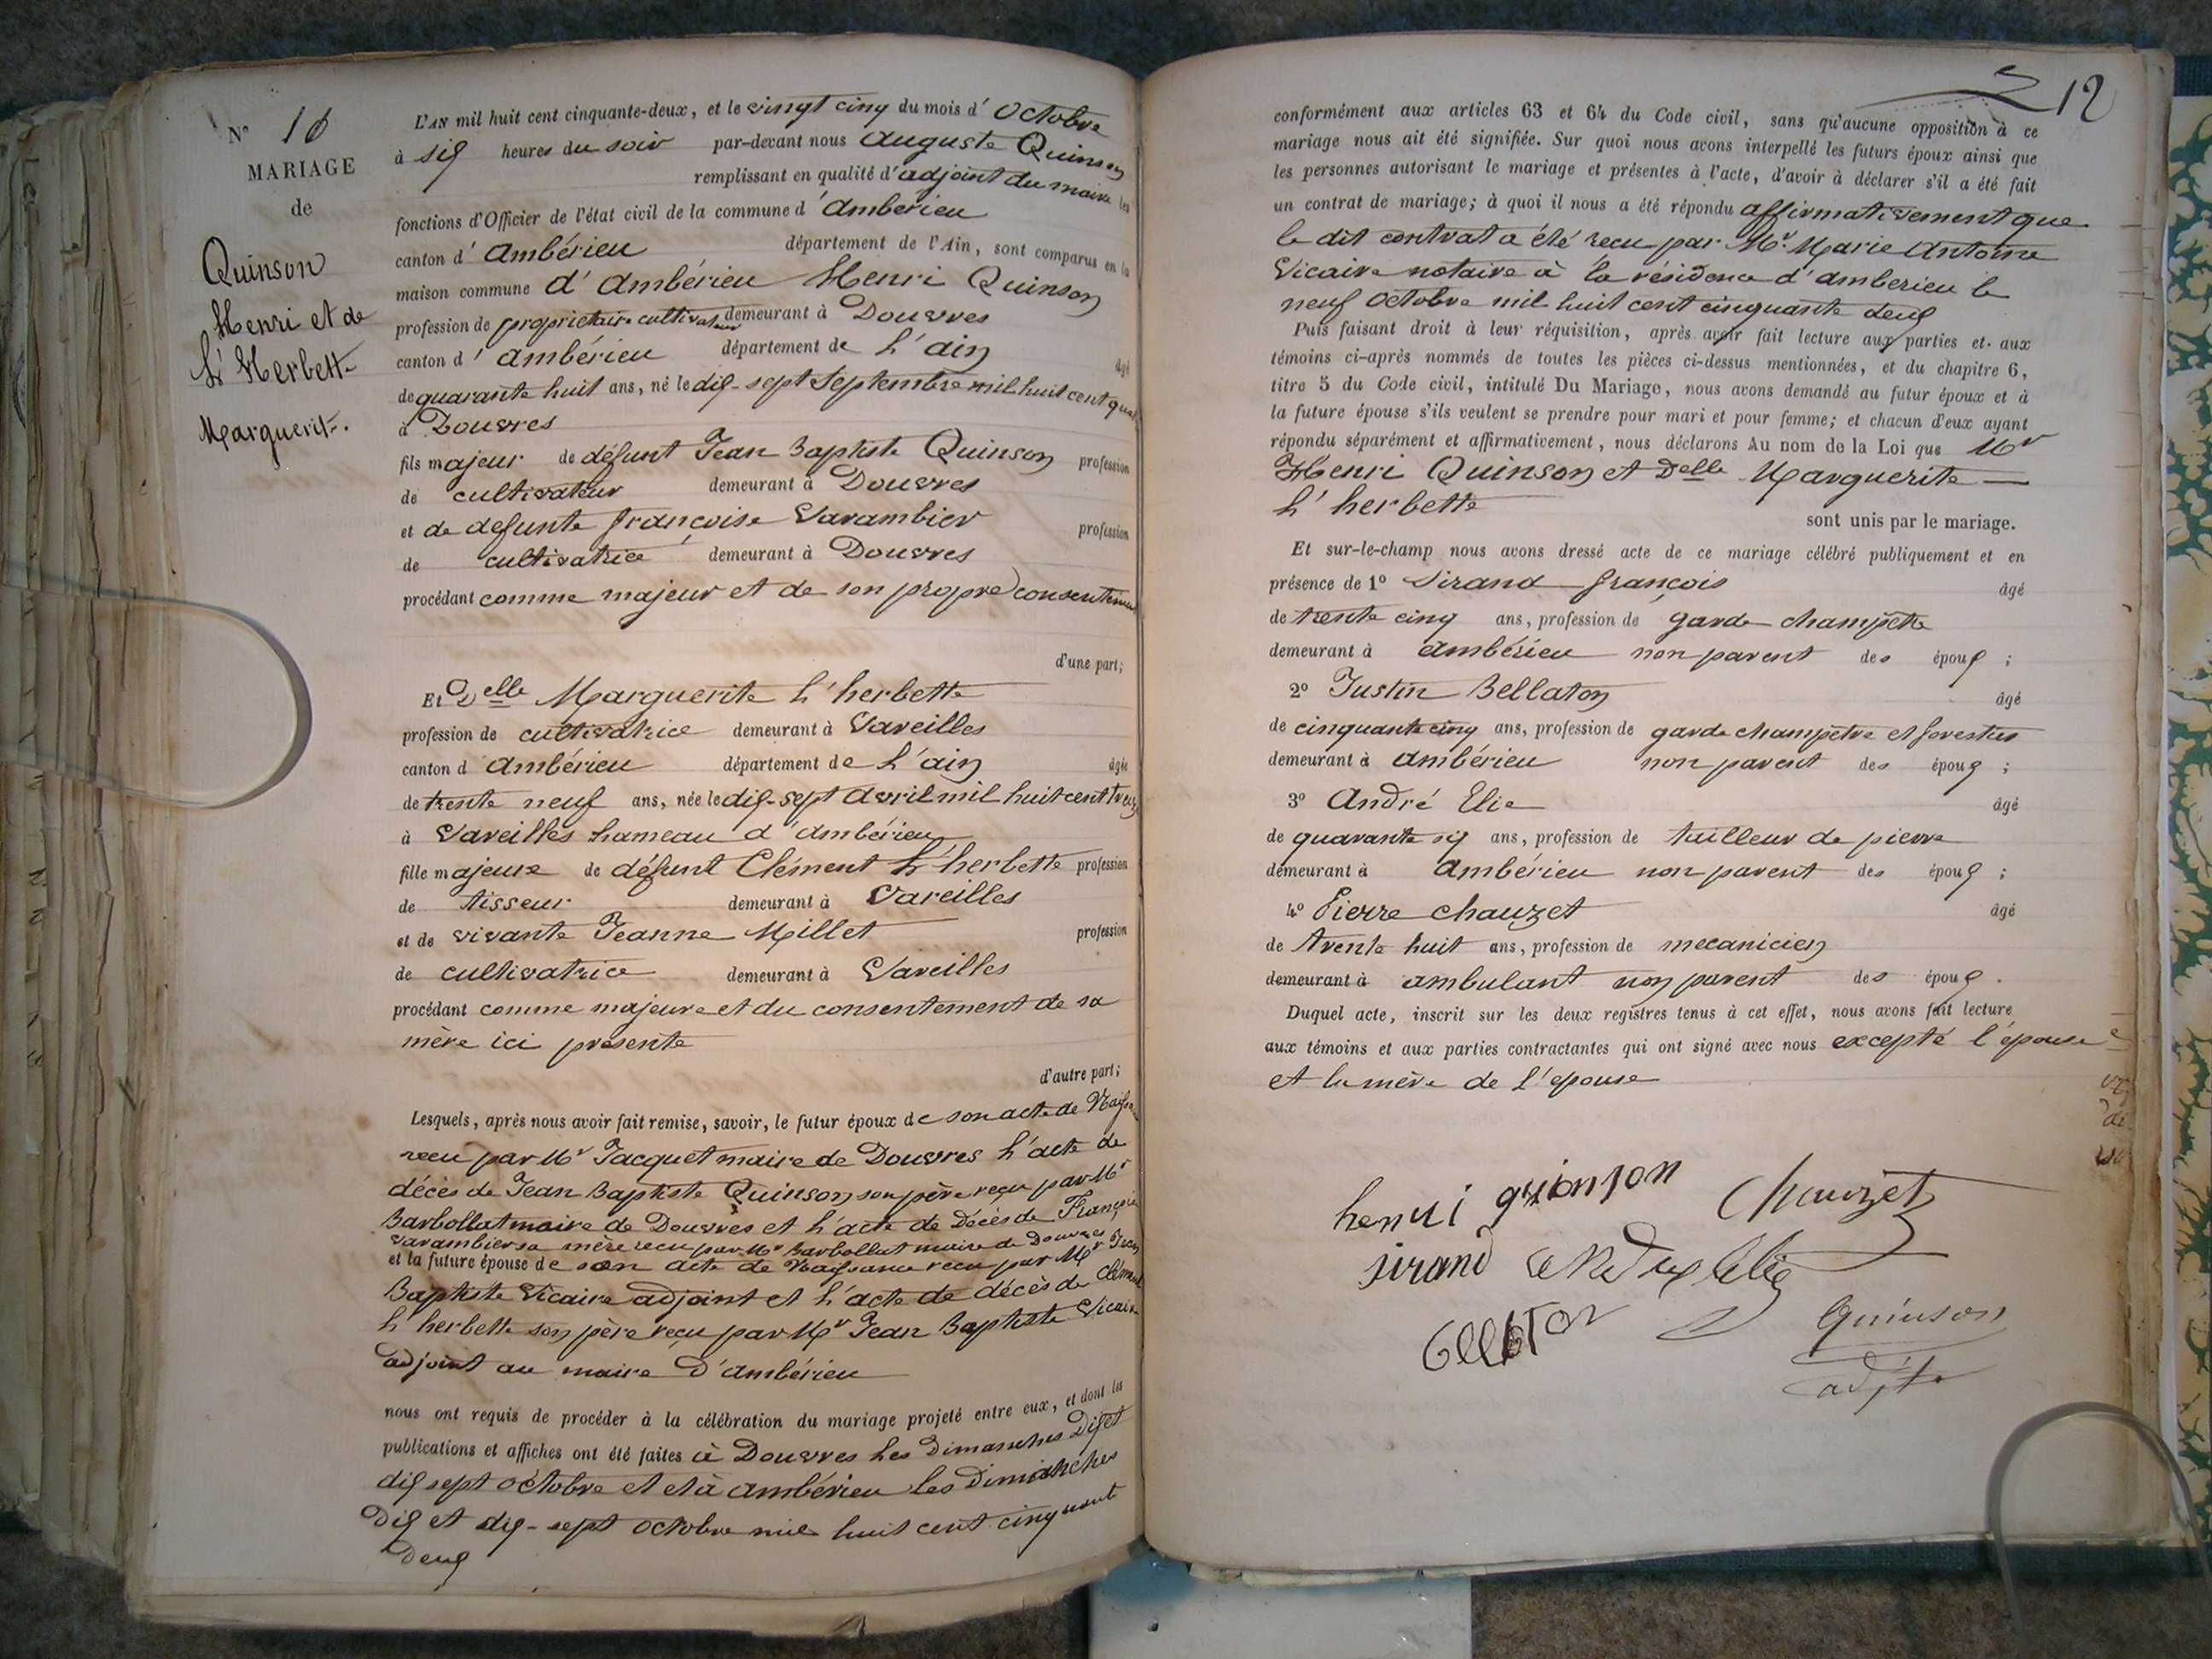 N° 16
MARIAGE
de
Quinson
Henri et de
L'Herbette
Marguerite.
L'AN mil huit cent cinquante-deux, et le vingt cinq du mois d'Octobre
à six heures du soir par-devant nous Auguste Quinson
remplissant en qualité d'adjoint du maire les
fonctions d'Officier de l'état civil de la commune d'Amberieu
canton d'Ambérieu département de l'Ain, sont comparus en la
maison commune d'Ambérieu Henri Quinson
profession de proprietaire cultivateur demeurant à Douvres
canton d'Ambérieu département de L'ain âgé
de quarante huit ans, né le dix-sept Septembre mil huit cent quat
à Douvres
fils majeur de défunt Jean Baptiste Quinson profession
de cultivateur demeurant à Douvres
et de defunte françoise Varambier profession
de cultivatrice demeurant à Douvres
procédant comme majeur et de son propre consentement
d'une part;
Et Delle Marguerite L'herbette
profession de cultivatrice demeurant à Vareilles
canton d Ambérieu département de L'ain âgée
de trente neuf ans, née le dix-sept Avril mil huit cent treize
à Vareilles hameau d'Ambérieu
fille majeure de défunt Clément L'herbette profession
de tisseur demeurant à Vareilles
et de vivante Jeanne Millet profession
de cultivatrice demeurant à Vareilles
procédant comme majeure et du consentement de sa
mère ici présente
d'autre part;
Lesquels, après nous avoir fait remise, savoir, le futur époux de son acte de Naissance
recu par Mr Jacquet maire de Douvres L'acte de
décès de Jean Baptiste Quinson son père reçu par Mr
Barbollat maire de Douvres et L'acte de Décès de Françoise
Varambier sa mère recu par Mr Barbollat maire de Douvres
et la future épouse de son acte de Naissance recu par Mr Jean
Baptiste Vicaire adjoint et L'acte de décès de Clément
L'herbette son père reçu par Mr Jean Baptiste Vicaire
adjoint au maire D'ambérieu
nous ont requis de procéder à la célébration du mariage projeté entre eux, et dont les
publications et affiches ont été faites à Douvres Les Dimanches Dix et
dix sept octobre et et à Ambérieu les Dimanches
Dix et dix-sept octobre mil huit cent cinquante
Deux
12
conformément aux articles 63 et 64 du Code civil, sans qu'aucune opposition à ce
mariage nous ait été signifiée. Sur quoi nous avons interpellé les futurs époux ainsi que
les personnes autorisant le mariage et présentes à l'acte, d'avoir à déclarer s'il a été fait
un contrat de mariage; à quoi il nous a été répondu affirmativement que
le dit contrat a été recu par Mr. Marie Antoine
Vicaire notaire à la résidence d'amberieu le
neuf Octobre mil huit cent cinquante deux
Puis faisant droit à leur réquisition, après avoir fait lecture aux parties et aux
témoins ci-après nommés de toutes les pièces ci-dessus mentionnées, et du chapitre 6,
titre 5 du Code civil, intitulé Du Mariage, nous avons demandé au futur époux et à
la future épouse s'ils veulent se prendre pour mari et pour femme; et chacun d'eux ayant
répondu séparément et affirmativement, nous déclarons Au nom de la Loi que Mr
Henri Quinson et Delle Marguerite
L'herbette
sont unis par le mariage.
Et sur-le-champ nous avons dressé acte de ce mariage célébré publiquement et en
présence de 1° Sirand françois âgé
de trente cinq ans, profession de garde champêtre
demeurant à Ambérieu non parent des époux ;
2° Justin Bellaton âgé
de cinquante cinq ans, profession de garde champetre et forestier
demeurant à Ambérieu non parent des époux ;
3° André Elie âgé
de quarante six ans, profession de tailleur de pierre
demeurant à Ambérieu non parent des époux ;
4° Pierre Chauzet âgé
de trente huit ans, profession de mecanicien
demeurant à ambulant non parent des époux.
Duquel acte, inscrit sur les deux registres tenus à cet effet, nous avons fait lecture
aux témoins et aux parties contractantes qui ont signé avec nous excepté l'épouse
et la mère de l'epouse
henri quinson Chauzet
sirand Elie
Quinson
adjt